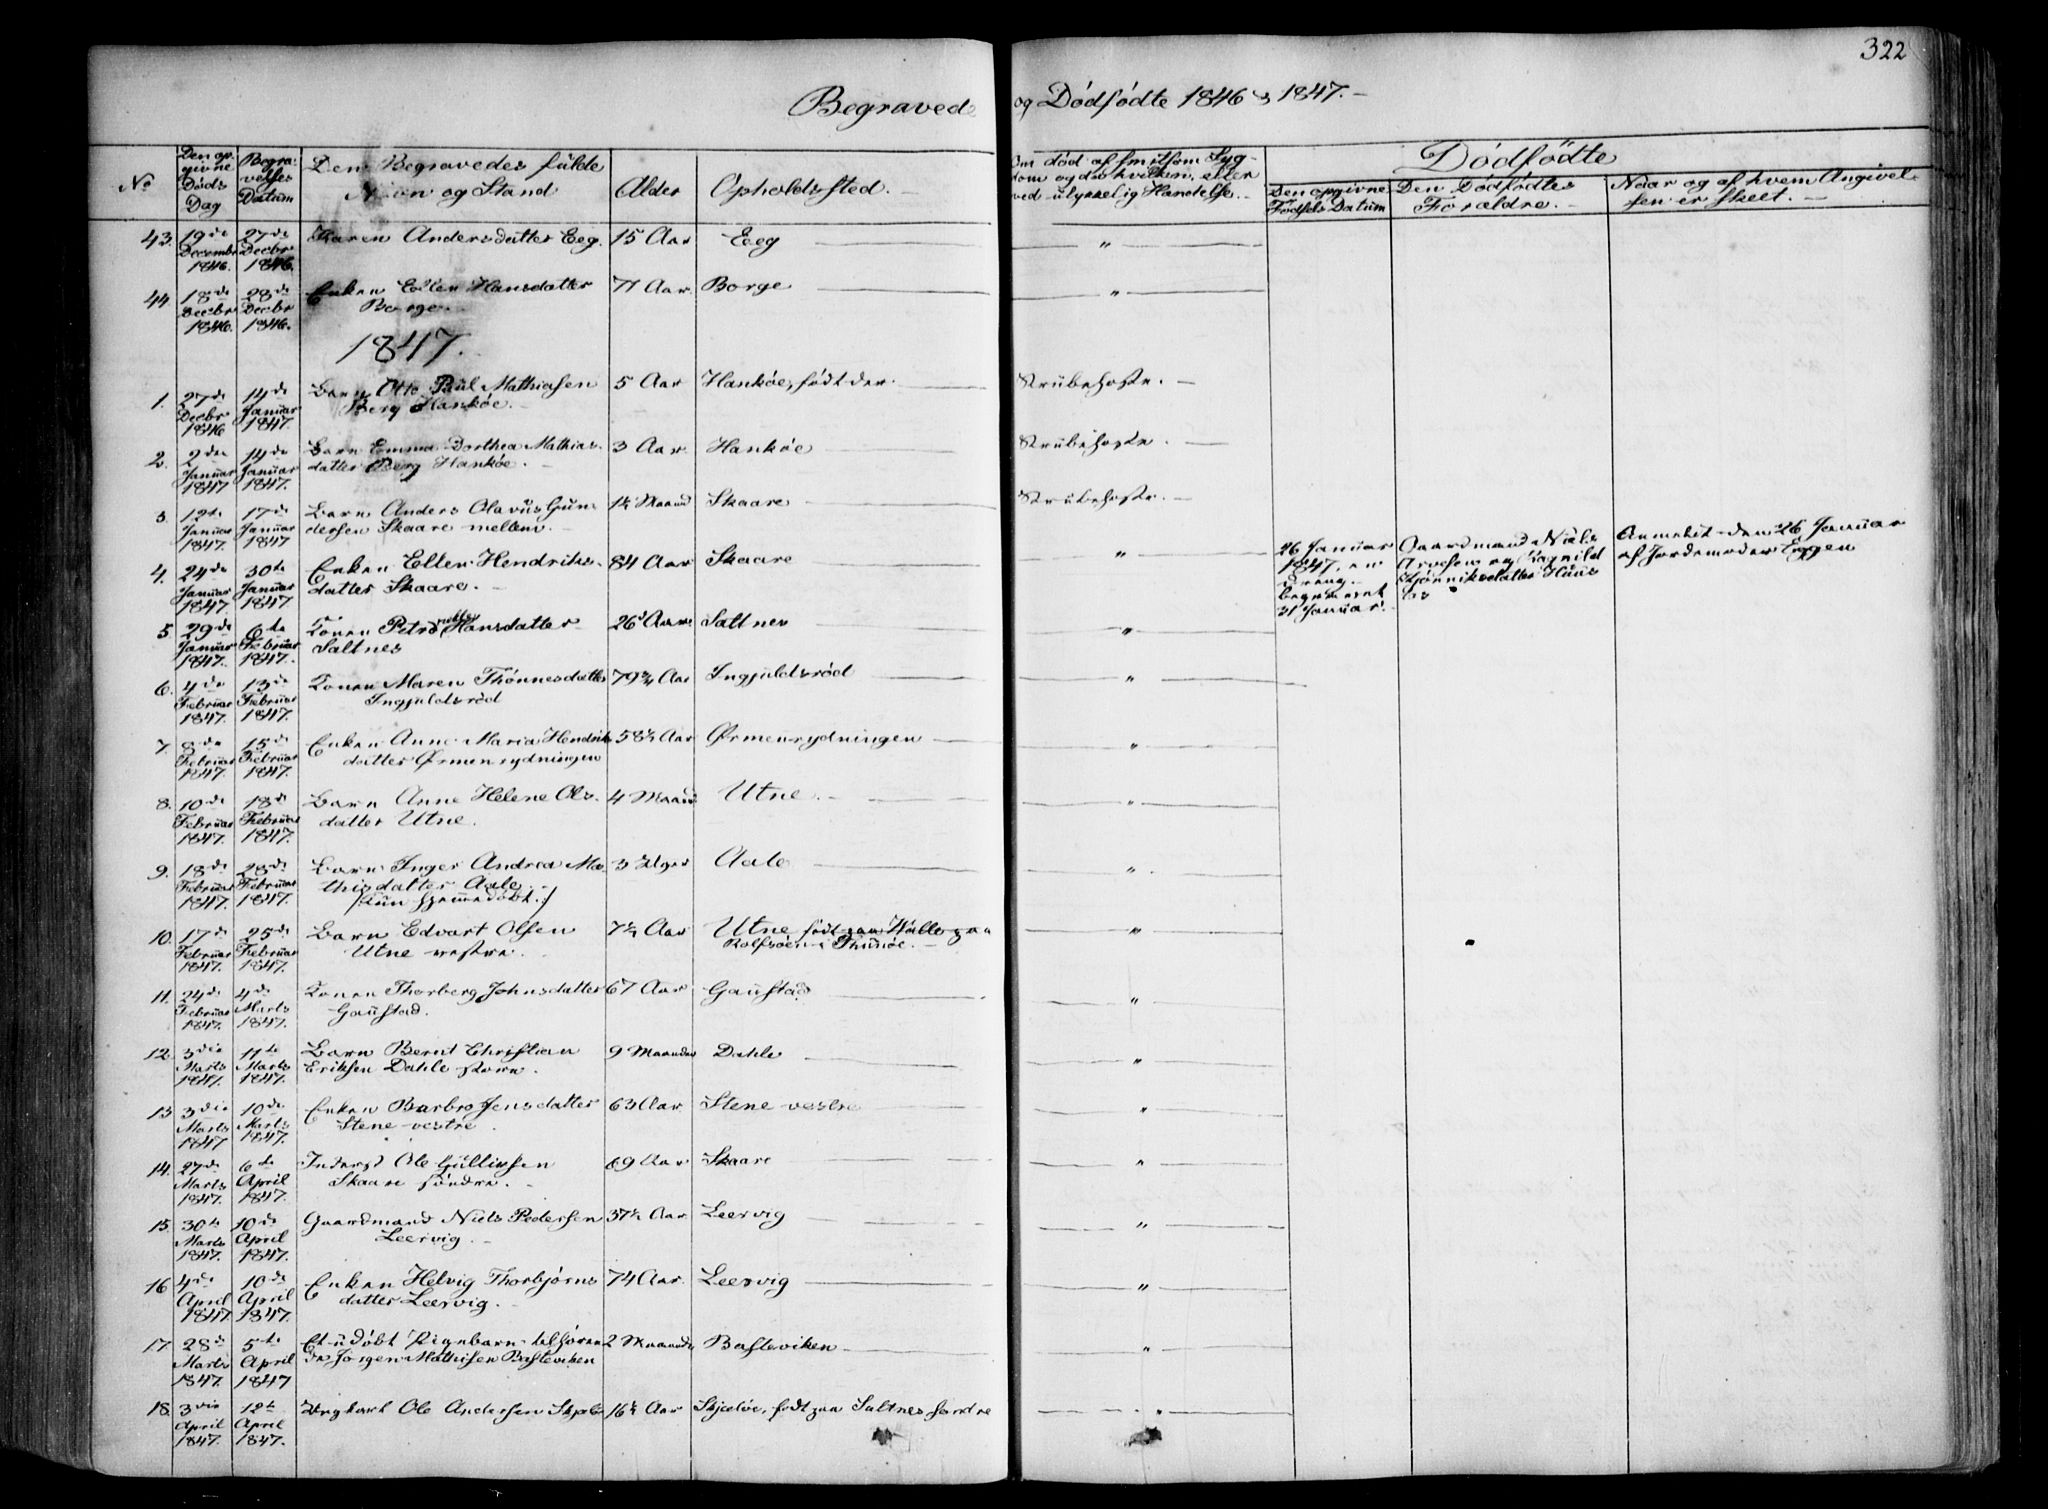 322
Begravede og Dödfödte 1846 & 1847.
No
Den opgivne Döds Dag
Begravelses Datum
Den Begravedes fulde Navn og Stand
Alder
Opholdssted.
Om död af smitsom Sygdom og da hvilken, eller ved ulykkelig Hændelse.
Dödfödte
Den opgivne Födsels Datum
Den Dödfödtes Forældre.
Naar og af hvem Angivelsen er skeet.
43. 19de Decembr 1846. 27de Decbr 1846. Karen Andersdatter Eeg. 15 Aar Eeg "
44 18de Decbr 1846. 28de Decbr 1846. Enken Ellen Hansdatter Borge. 77 Aar. Borge "
1847.
1. 27de Decbr 1846 14de Januar 1847. Barn Otto Paul Mathiasen Berg Hankøe. 5 Aar Hankøe, født der. Strubehoste.
2. 2den Januar 1847 14de Januar 1847. Barn Emma Dorthea Mathiasdatter Berg Hankøe. 3 Aar Hankøe Strubehoste.
3. 12te Januar 1847. 17de Januar 1847 Barn Anders Olavus Gundersen Skaare mellem. Maaned Skaare Strubehoste.
4. 24de Januar 1847. 30te Januar 1847 Enken Ellen Hendriksdatter Skaare. 84 Aar Skaare "
26 Januar 1847. en Dreng. begravet 31 Januar. Gaardmand Niels Arvesen og Ragnild Huus Anmeldt den 26 Januar af Jordemoder Eggen
5. 29de Januar 1847. 6te Februar 1847. Konen Hansdatter Saltnes 26 Aar Saltnes "
6. 4de Februar 1847. 13de Februar 1847. Konen Maren Thönnesdatter Ingjuldsröd 79 3/4 Aar Ingjuldsröd "
7. 8de Februar 1847. 15de Februar 1847. Enken Anne Maria Hendriksdatter Ørmenrydningen 58 1/2 Aar Ørmenrydningen "
8. 10de Februar 1847. 18de Februar 1847. Barn Anne Helene Olsdatter Utne. 4 Maan Utne. "
9. 18de Februar 1847. 28de Februar 1847. Barn Inger Andrea Mathisdatter Aale. /kun hjemmedöbt./ 3 Uger Aale "
10. 17de Februar 1847. 25de Februar 1847. Barn Edvart Olsen Utne vestre. Aar Utne født paa Rolfsöen i Thunöe. "
11. 24de Februar 1847. 4de Marts 1847. Konen Thorberg Johnsdatter Gaustad. 67 Aar Gaustad "
12. 3die Marts 1847. 11te Marts 1847. Barn Bernt Christian Eriksen Dahle store. 9 Maaneder Dahle "
13 3die Marts 1847 10de Marts 1847. Enken Barbro Jensdatter Stene vestre. 63 Aar Stene vestre "
14. 27de Marts 1847. 6te April 1847. Inderst Ole Gulliksen Skaare söndre. 69 Aar Skaare "
15. 30te Marts 1847. 10de April 1847. Gaardmand Niels Pedersen Leervig. 37 1/2 Aar. Leervig "
16 4de April 1847 10de April 1847. Enken Helvig Thorbjörnsdatter Leervig. 74 Aar. Leervig "
17. 28de Marts 1847. 5te April 1847 Et udöbt Pigebarn tilhörende Jörgen Mathisen Basteviken 2 Maaneder Basteviken "
18. 3die April 1847. 12te April 1847. Ungkarl Ole Andersen 16 1/2 Aar Skjælöe, födt paa Saltnes söndre "